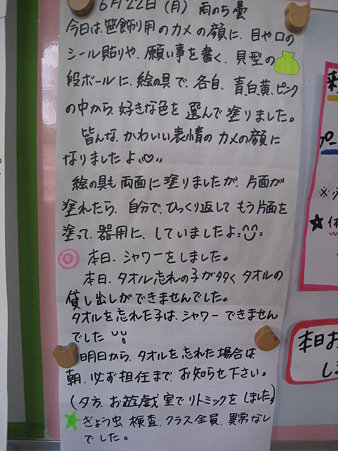 6月22日(月) 雨のち曇
今日は、笹飾り用のカメの顔に、目や口の
シール貼りや、願い事を書く、貝型の
段ボールに、絵の具で、各自、青白黄、ピンク
の中から、好きな色を選んで塗りました。
皆んな、かわいい表情のカメの顔に
なりましたよ
絵の具も両面に塗りましたが、片面が
塗れたら、自分で、ひっくり返して もう片面を
塗って、器用に、していましたよ
◎ 本日、シャワーをしました。
本日、タオル忘れの子が多く タオルの
貸し出しができませんでした。
タオルを忘れた子は、シャワーできません
でした
明日から、タオルを忘れた場合は
朝、必ず担任までお知らせ下さい。
(夕方、お遊戯室でリトミックをしました)
★ぎょう虫 検査、クラス全員、異常なし
でした。
本日お
し